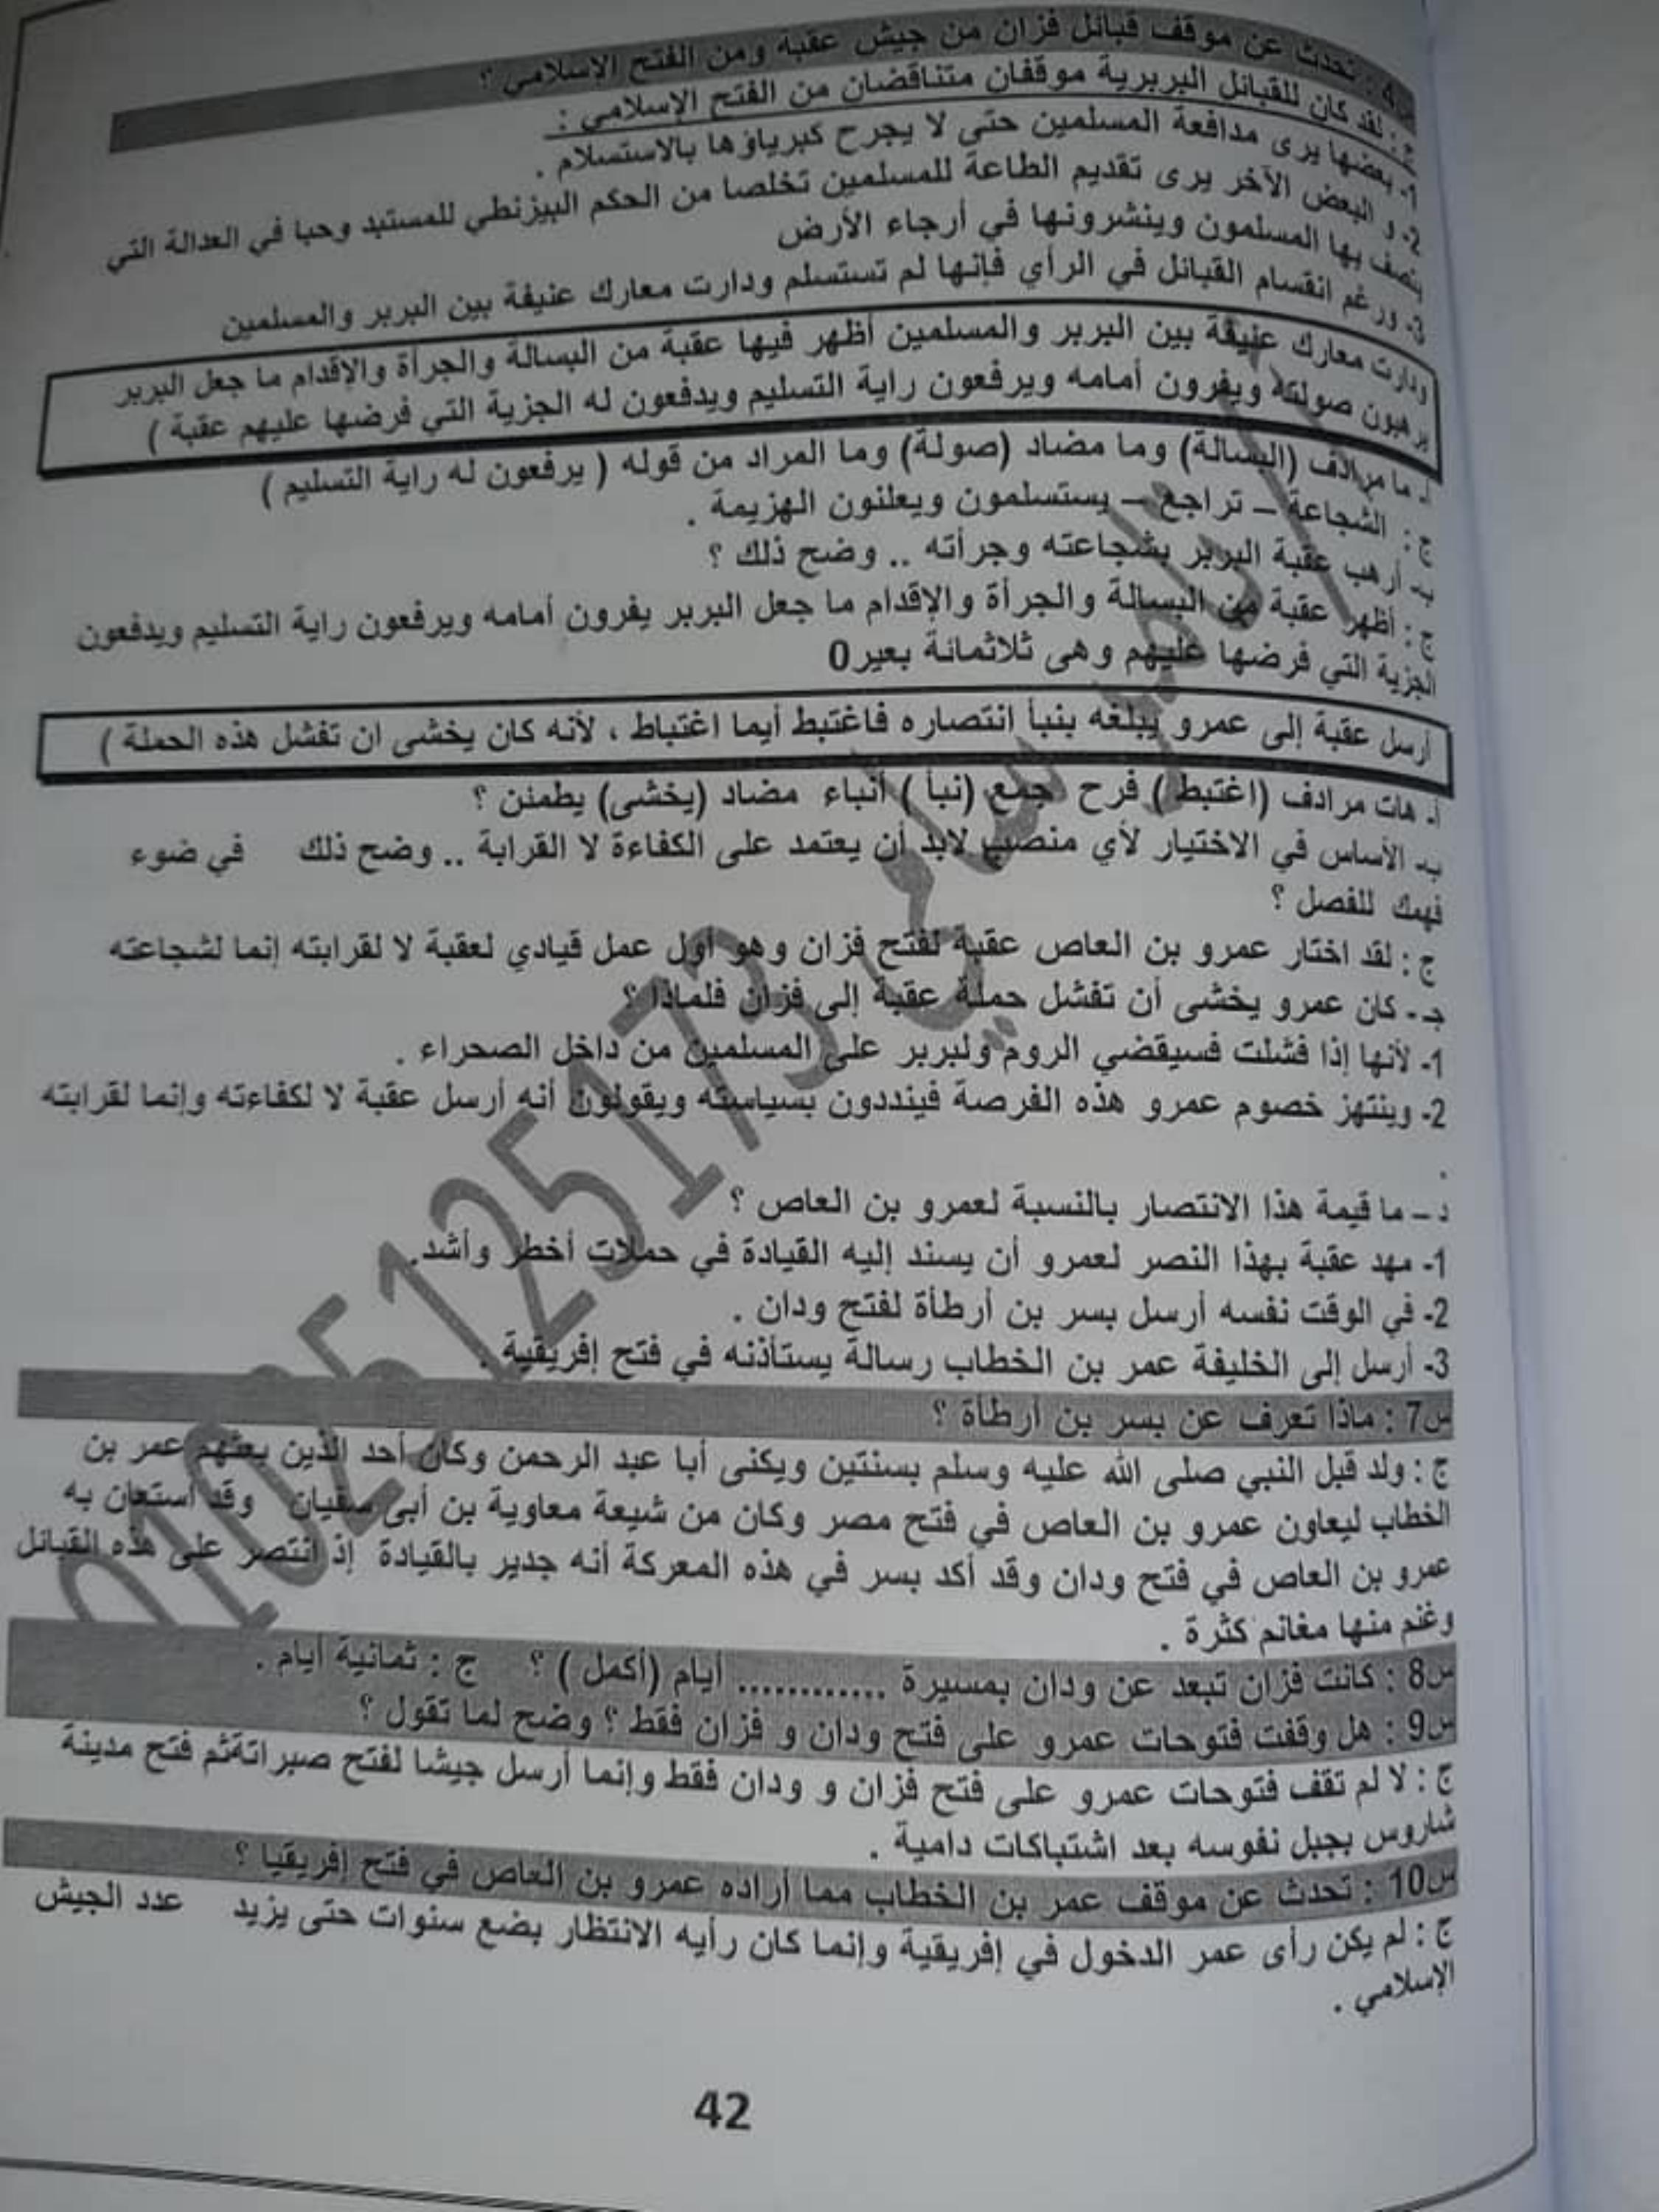 س4 : تحدث عن موقف قبائل فزان من جيش عقبة ومن الفتح الإسلامي ؟
ج : لقد كان للقبائل البربرية موقفان متناقضان من الفتح الإسلامي :
1- بعضها يرى مدافعة المسلمين حتى لا يجرح كبرياؤها بالاستسلام .
2- و البعض الآخر يرى تقديم الطاعة للمسلمين تخلصا من الحكم البيزنطي للمستبد وحبا في العدالة التي
يتصف بها المسلمون وينشرونها في أرجاء الأرض
3- ورغم انقسام القبائل في الرأي فإنها لم تستسلم ودارت معارك عنيفة بين البربر والمسلمين
ودارت معارك عنيفة بين البربر والمسلمين أظهر فيها عقبة من البسالة والجرأة والإقدام ما جعل البربر
يرهبون صولته ويفرون أمامه ويرفعون راية التسليم ويدفعون له الجزية التي فرضها عليهم عقبة )
أ- ما مرادف (البسالة) وما مضاد (صولة) وما المراد من قوله ( يرفعون له راية التسليم )
ج : الشجاعة – تراجع – يستسلمون ويعلنون الهزيمة .
ب- أرهب عقبة البربر بشجاعته وجرأته .. وضح ذلك ؟
ج : أظهر عقبة من البسالة والجرأة والإقدام ما جعل البربر يفرون أمامه ويرفعون راية التسليم ويدفعون
الجزية التي فرضها عليهم وهى ثلاثمائة بعير0
أرسل عقبة إلى عمرو يبلغه بنبأ انتصاره فاغتبط أيما اغتباط ، لأنه كان يخشى ان تفشل هذه الحملة )
أ- هات مرادف (اغتبط ) فرح جمع (نبأ ) أنباء مضاد (يخشى) يطمئن ؟
ب- الأساس في الاختيار لأي منصب لابد أن يعتمد على الكفاءة لا القرابة .. وضح ذلك في ضوء
فهمك للفصل ؟
ج : لقد اختار عمرو بن العاص عقبة لفتح فزان وهو أول عمل قيادي لعقبة لا لقرابته إنما لشجاعته
جـ - كان عمرو يخشى أن تفشل حملة عقبة إلى فزان فلماذا ؟
1- لأنها إذا فشلت فسيقضي الروم ولبربر على المسلمين من داخل الصحراء .
2- وينتهز خصوم عمرو هذه الفرصة فينددون بسياسته ويقولون أنه أرسل عقبة لا لكفاءته وإنما لقرابته
.
د – ما قيمة هذا الانتصار بالنسبة لعمرو بن العاص ؟
1- مهد عقبة بهذا النصر لعمرو أن يسند إليه القيادة في حملات أخطر وأشد.
2- في الوقت نفسه أرسل بسر بن أرطأة لفتح ودان .
3- أرسل إلى الخليفة عمر بن الخطاب رسالة يستأذنه في فتح إفريقية .
س7 : ماذا تعرف عن بسر بن أرطأة ؟
ج : ولد قبل النبي صلى الله عليه وسلم بسنتين ويكنى أبا عبد الرحمن وكان أحد الذين بعثهم عمر بن
الخطاب ليعاون عمرو بن العاص في فتح مصر وكان من شيعة معاوية بن أبى سفيان وقد استعان به
عمرو بن العاص في فتح ودان وقد أكد بسر في هذه المعركة أنه جدير بالقيادة إذ انتصر على هذه القبائل
وغنم منها مغانم كثرة .
س8 : كانت فزان تبعد عن ودان بمسيرة ............ أيام (أكمل ) ؟ ج : ثمانية أيام .
س9 : هل وقفت فتوحات عمرو على فتح ودان و فزان فقط ؟ وضح لما تقول ؟
ج : لا لم تقف فتوحات عمرو على فتح فزان و ودان فقط وإنما أرسل جيشا لفتح صبراتةثم فتح مدينة
شاروس بجبل نفوسه بعد اشتباكات دامية .
س10 : تحدث عن موقف عمر بن الخطاب مما أراده عمرو بن العاص في فتح إفريقيا ؟
ج : لم يكن رأى عمر الدخول في إفريقية وإنما كان رأيه الانتظار بضع سنوات حتى يزيد عدد الجيش
الإسلامي .
42